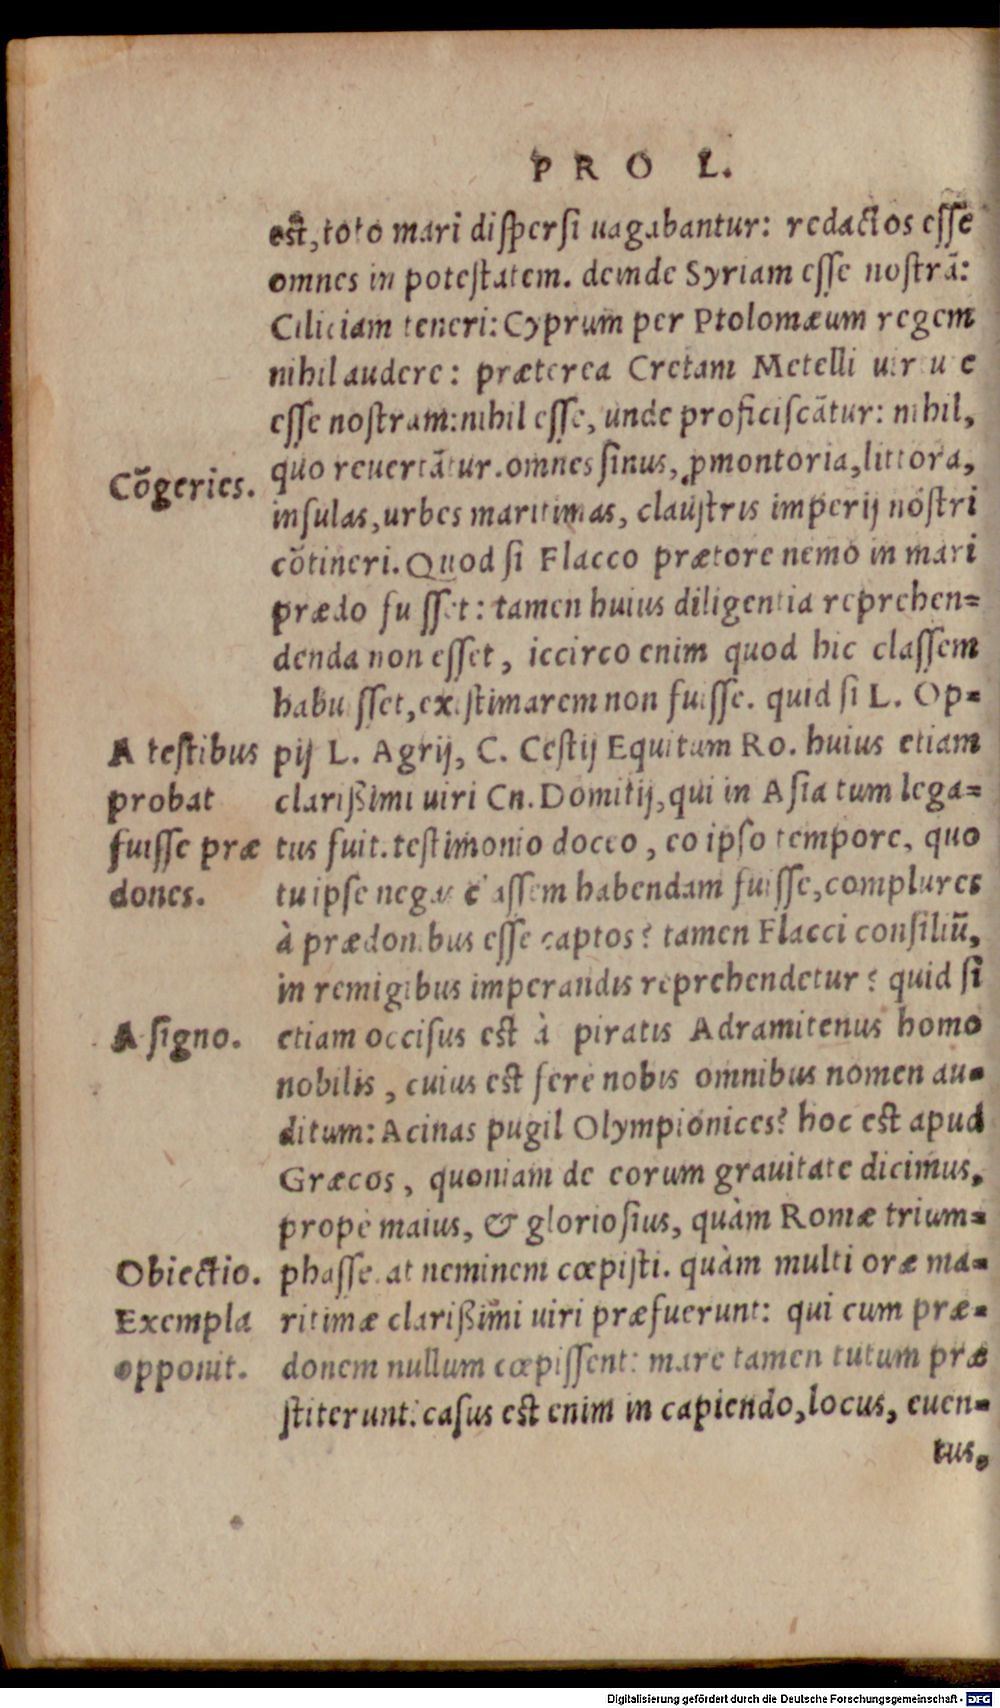 PRO L.
est, toto mari dispersi uagabantur: redactos esse
omnes in potestatem. deinde Syriam esse nostrā:
Ciliciam teneri: Cyprum per Ptolomæum regem
nihil audere: præterea Cretam Metelli
esse nostram: nihil esse, unde proficiscātur: nihil,
Cōgeries. quo reuertātur. omnes sinus, ꝓmontoria, littora,
insulas, urbes maritimas, claustris imperij nostri
cōtineri. Quod si Flacco prætore nemo in mari
prædo fuisset: tamen huius diligentia reprehen=
denda non esset, iccirco enim quod hic classem
habuisset, existimarem non fuisse. quid si L. Op=
A testibus pij L. Agrij, C. Cestij Equitum Ro. huius etiam
probat clarißimi uiri Cn. Domitij, qui in Asia tum lega=
fuisse præ tus fuit. testimonio doceo, eo ipso tempore, quo
dones. tu ipse habendam fuisse, complures
à prædonibus esse captos? tamen Flacci consiliū,
in remigibus imperandis reprehendetur? quid si
A signo. etiam occisus est à piratis Adramitenus homo
nobilis, cuius est fere nobis omnibus nomen au=
ditum: Acinas pugil Olympionices? hoc est apud
Græcos, quoniam de eorum grauitate dicimus,
prope maius, & gloriosius, quàm Romæ trium=
Obiectio. phasse. at neminem cœpisti. quàm multi oræ ma=
Exempla ritimæ clarißimi uiri præfuerunt: qui cum præ=
opponit. donem nullum cœpissent: mare tamen tutum præ
stiterunt. casus est enim in capiendo, locus, euen=
tus,
Digitalisierung gefördert durch die Deutsche Forschungsgemeinschaft - DFG